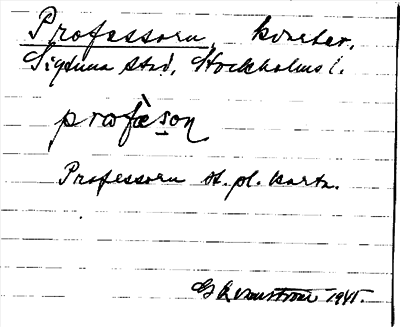 Professorn, kvarter.
Sigtuna stad, Stockholms l.
profèson
Professorn st. pl. karta.
1941.